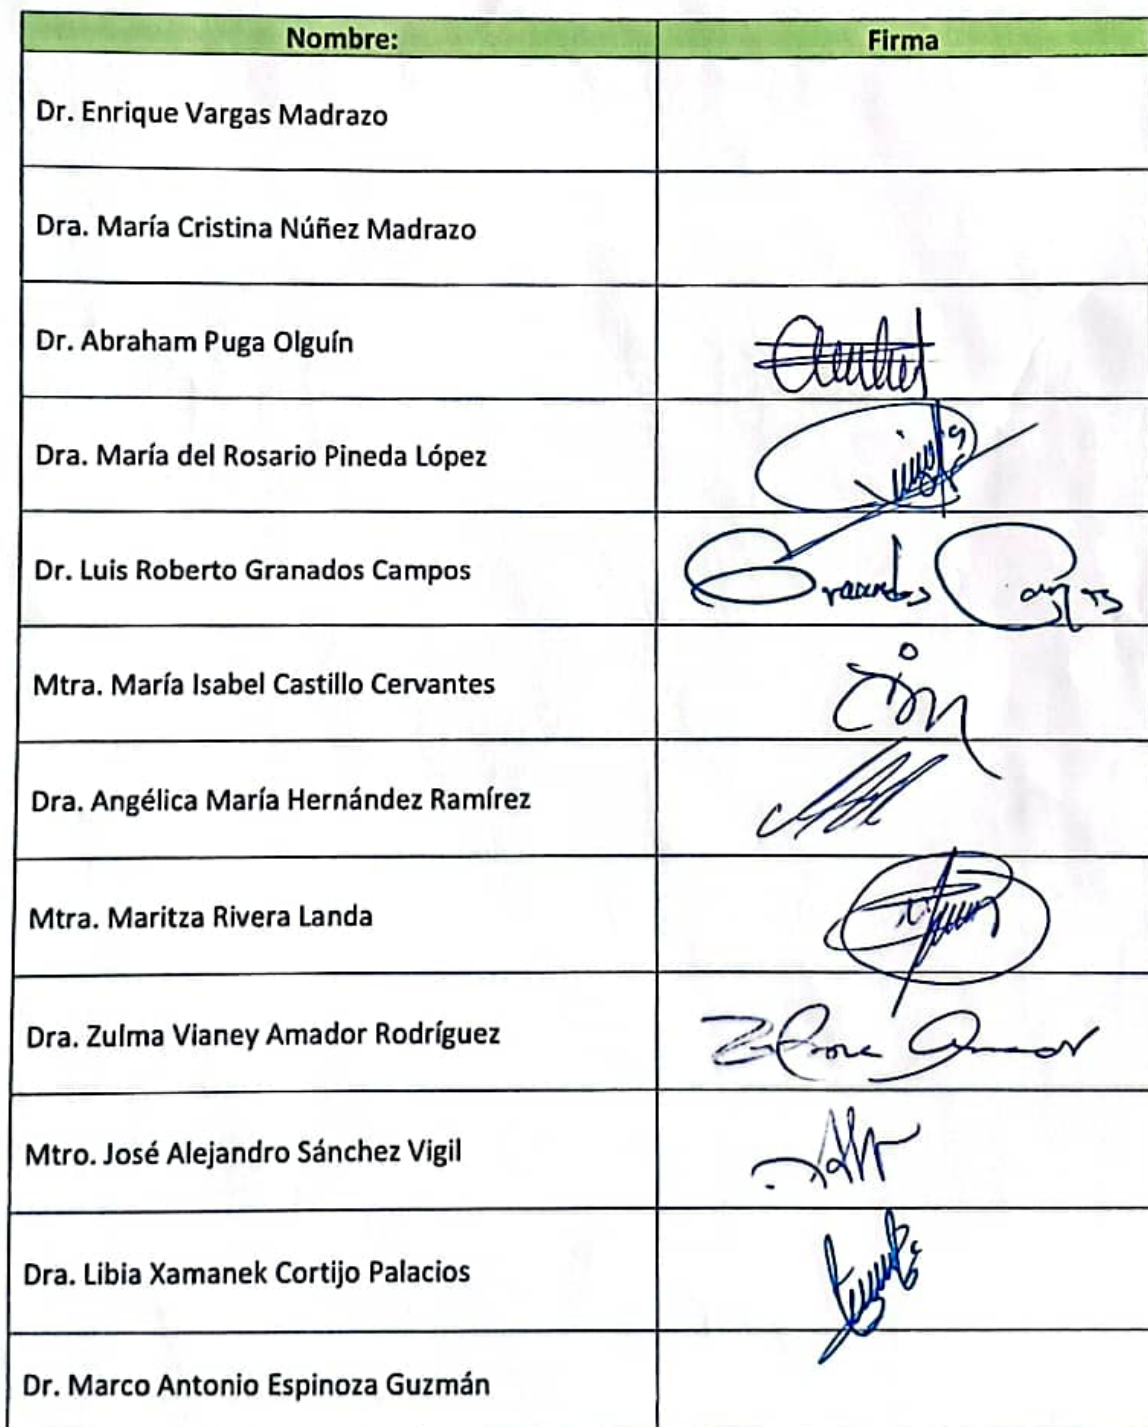 Nombre: Firma
Dr. Enrique Vargas Madrazo
Dra. María Cristina Núñez Madrazo
Dr. Abraham Puga Olguín
Dra. María del Rosario Pineda López
Dr. Luis Roberto Granados Campos Granados Campos
Mtra. María Isabel Castillo Cervantes
Dra. Angélica María Hernández Ramírez
Mtra. Maritza Rivera Landa
Dra. Zulma Vianey Amador Rodríguez Zulma Amador
Mtro. José Alejandro Sánchez Vigil
Dra. Libia Xamanek Cortijo Palacios
Dr. Marco Antonio Espinoza Guzmán